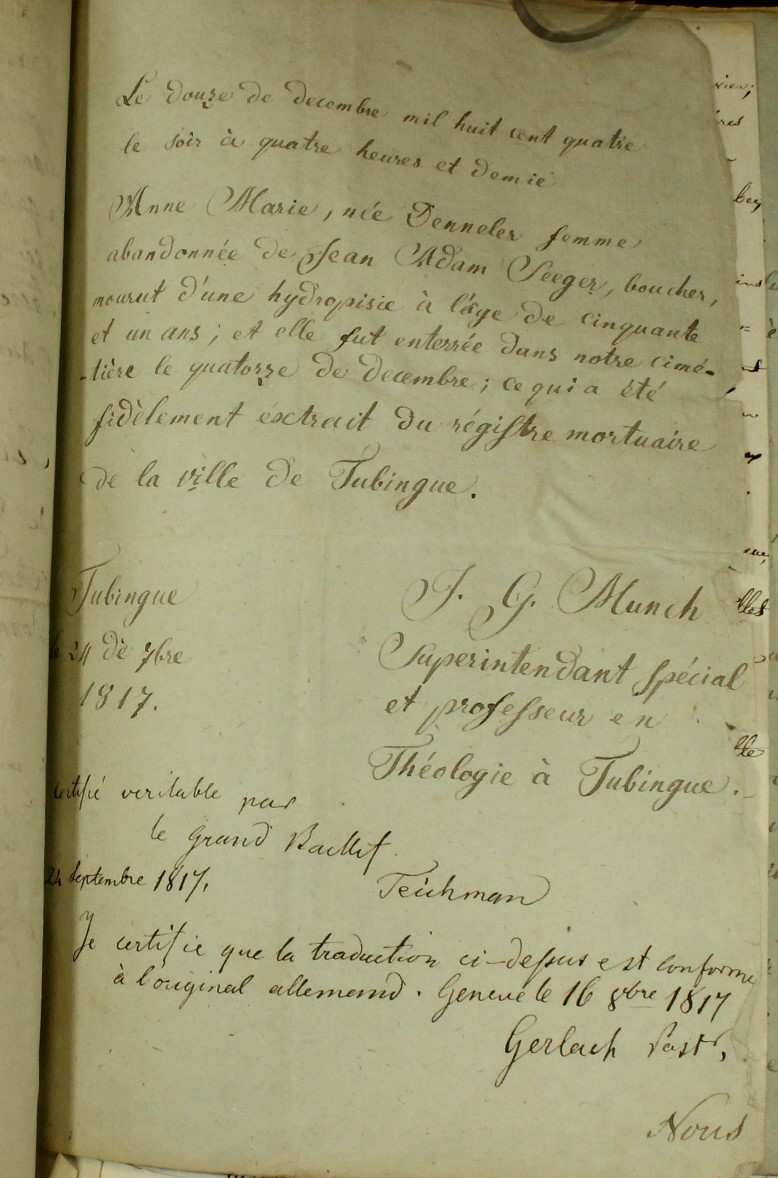 Le douze de decembre mil huit cent quatre
le soir à quatre heures et demie
Anne Marie, née Denneler femme
abandonnée de Jean Adam Seeger, boucher,
mourut d'une hydropisie à l'âge de cinquante
et un ans; et elle fut enterrée dans notre cimé-
-tière le quatorze de decembre; ce qui a été
fidèlement éxtrait du régistre mortuaire
de la ville de Tubingue.
Tubingue
le 24 de 7bre
1817.
J. G. Munch
Superintendant spécial
et professeur en
Théologie à Tubingue.
Certifié veritable par
le Grand Baillif
24 Septembre 1817.
Teichman
Je certifie que la traduction ci-dessus est conforme
à l'original allemand. Genève le 16 8bre 1817
Gerlach Past.
Nous